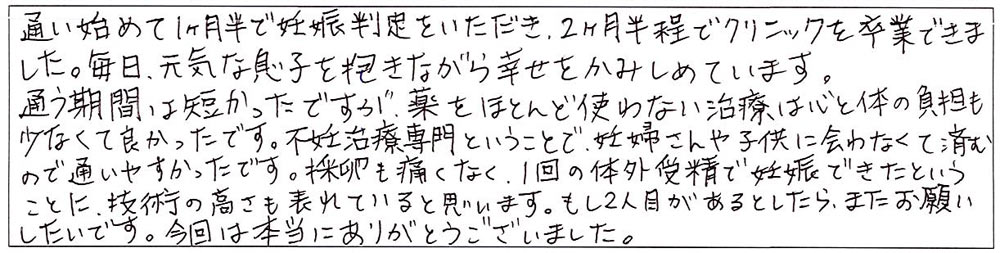 通い始めて1ヶ月半で妊娠判定をいただき、2ヶ月半程でクリニックを卒業できま
した。毎日、元気な息子を抱きながら幸せをかみしめています。
通う期間は短かったですが、薬をほとんど使わない治療は心と体の負担も
少なくて良かったです。不妊治療専門ということで、妊婦さんや子供に会わなくて済む
ので通いやすかったです。採卵も痛くなく、1回の体外受精で妊娠できたという
ことに、技術の高さも表れていると思います。もし2人目があるとしたら、またお願い
したいです。今回は本当にありがとうございました。